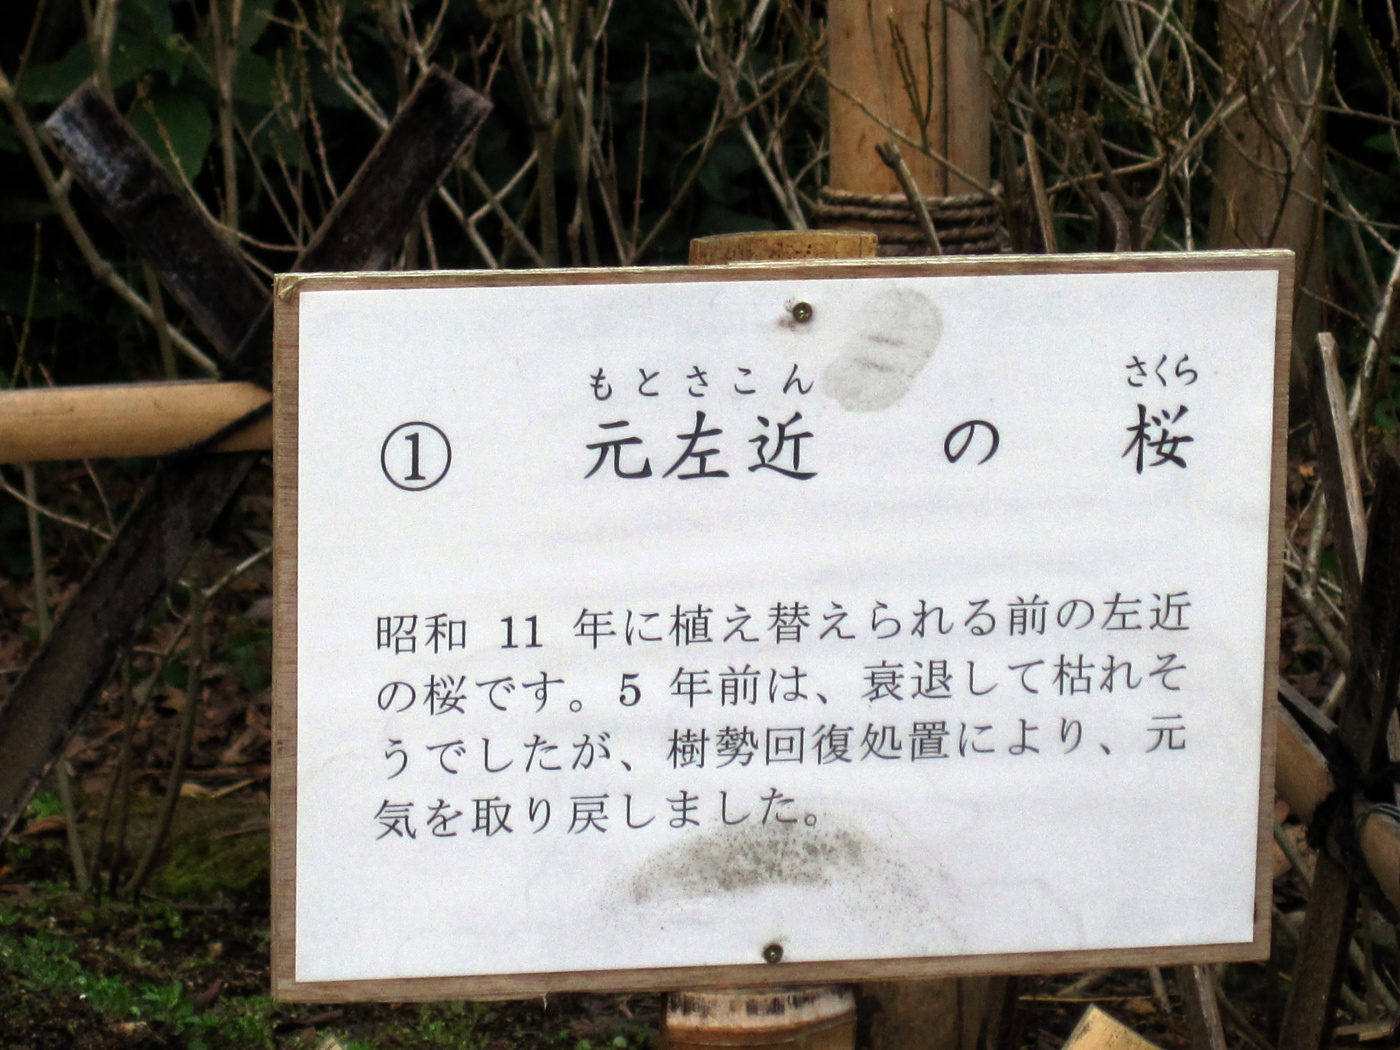 もとさこん さくら
① 元左近 の 桜
昭和 11 年に植え替えられる前の左近
の桜です。5 年前は、衰退して枯れそ
うでしたが、樹勢回復処置により、元
気を取り戻しました。